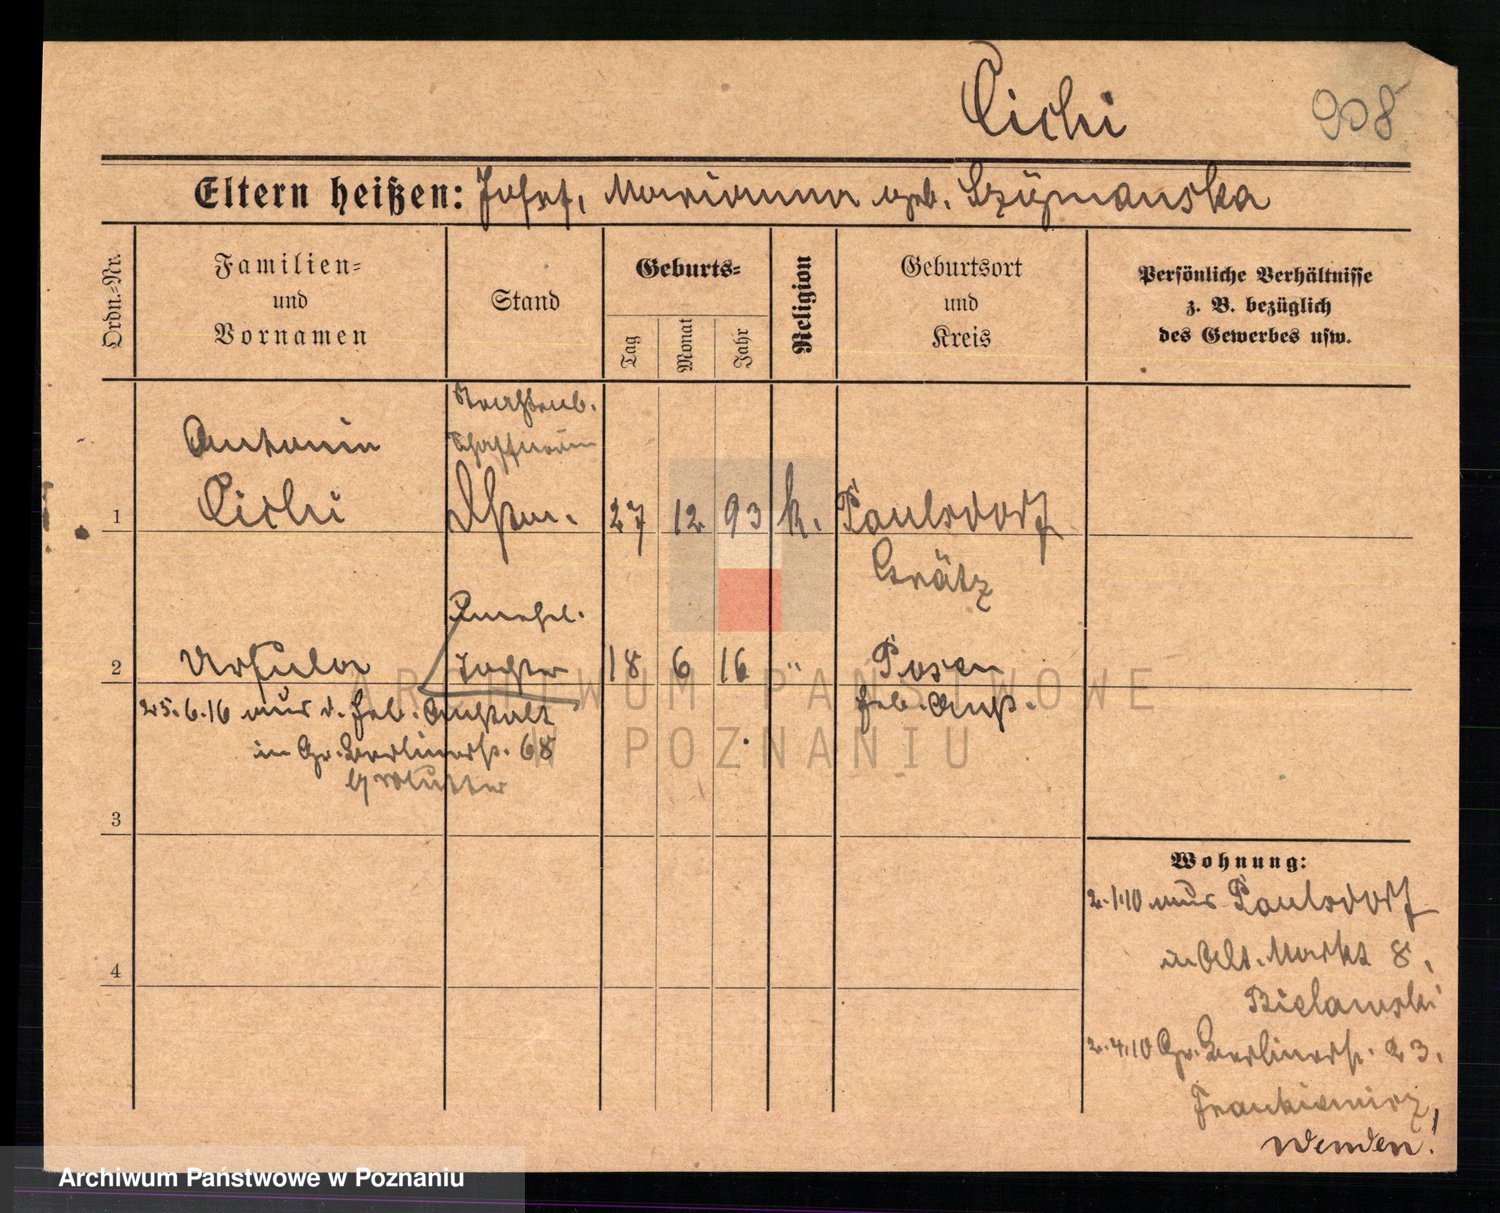 Cichi
908
Eltern heißen: Josef, Marianna geb. Szÿmanska
Ordn.-Nr.
Familien-
und
Vornamen
Stand
Geburts-
Tag
Monat
Jahr
Religion
Geburtsort
und
Kreis
Persönliche Verhältnisse
z. B. bezüglich
des Gewerbes usw.
Straßenb.
Schaffnerin
Antonin
1 Cichi 27 12 93 k. Paulsdorf
Grätz
Unehel.
2 Ursula Tochter 18 6 16 " Posen
25.6.16 aus d. Heb. Anstalt
Heb. Anst.
in Gr. Berlinerstr. 68
b/ Mutter
3
4
Wohnung:
2.1.10 aus Paulsdorf
in Alt. Markt 8,
Bielawski
2.4.10 Gr. Berlinerstr. 23.
Frankiewicz,
wenden!
ARCHIWUM PAŃSTWOWE
W POZNANIU
Archiwum Państwowe w Poznaniu